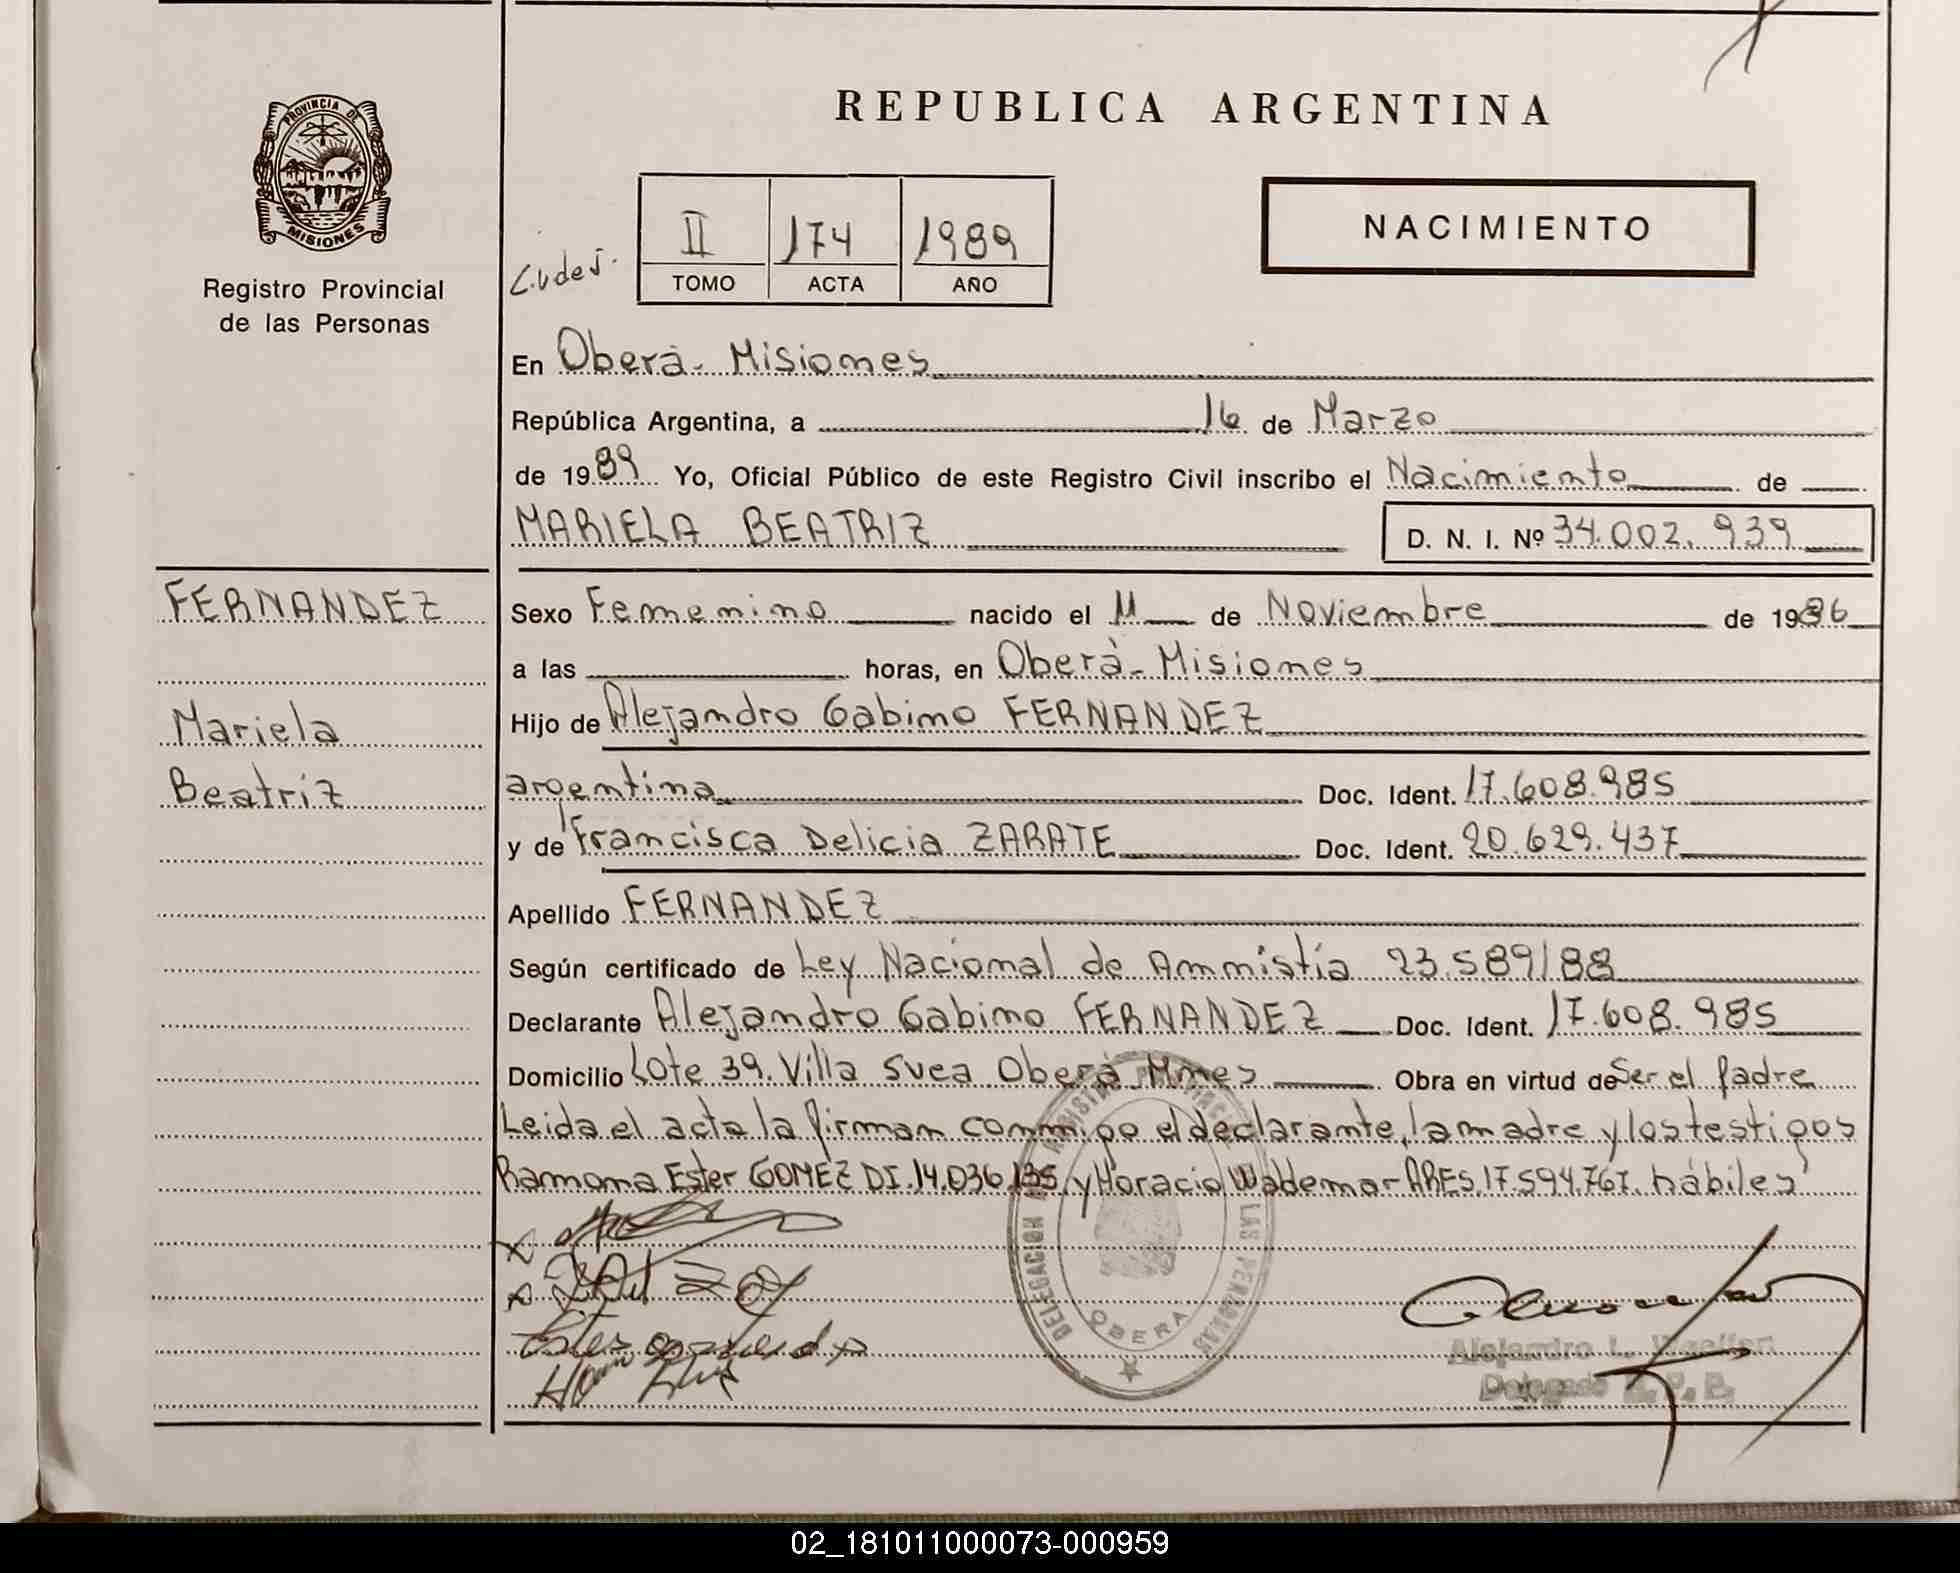 REPUBLICA ARGENTINA
PROVINCIA DE
MISIONES
Registro Provincial
de las Personas
II 174 1989
TOMO ACTA AÑO
NACIMIENTO
En Oberá- Misiones
República Argentina, a 16 de Marzo
de 1989 Yo, Oficial Público de este Registro Civil inscribo el Nacimiento de
MARIELA BEATRIZ D. N. I. Nº 34.002.939
FERNANDEZ
Mariela
Beatriz
Sexo Femenino nacido el 11 de Noviembre de 1986
a las horas, en Oberá- Misiones
Hijo de Alejandro Gabino FERNANDEZ
argentina Doc. Ident. 17.608.985
y de Francisca Delicia ZARATE Doc. Ident. 20.629.437
Apellido FERNANDEZ
Según certificado de Ley Nacional de Ammistía 23.589/88
Declarante Alejandro Gabino FERNANDEZ Doc. Ident. 17.608.985
Domicilio Lote 39. Villa Svea Oberá Mnes Obra en virtud de Ser el padre
Leida el acta la firman conmigo el declarante, la madre y los testigos
Ramona Ester GOMEZ DI.14.036.135 y Horacio Waldemar ARES.17.594.767. hábiles
DELEGACION LAS PERSONAS
OBERA
Alejandro L.
Delegado R. P. P.
02_181011000073-000959